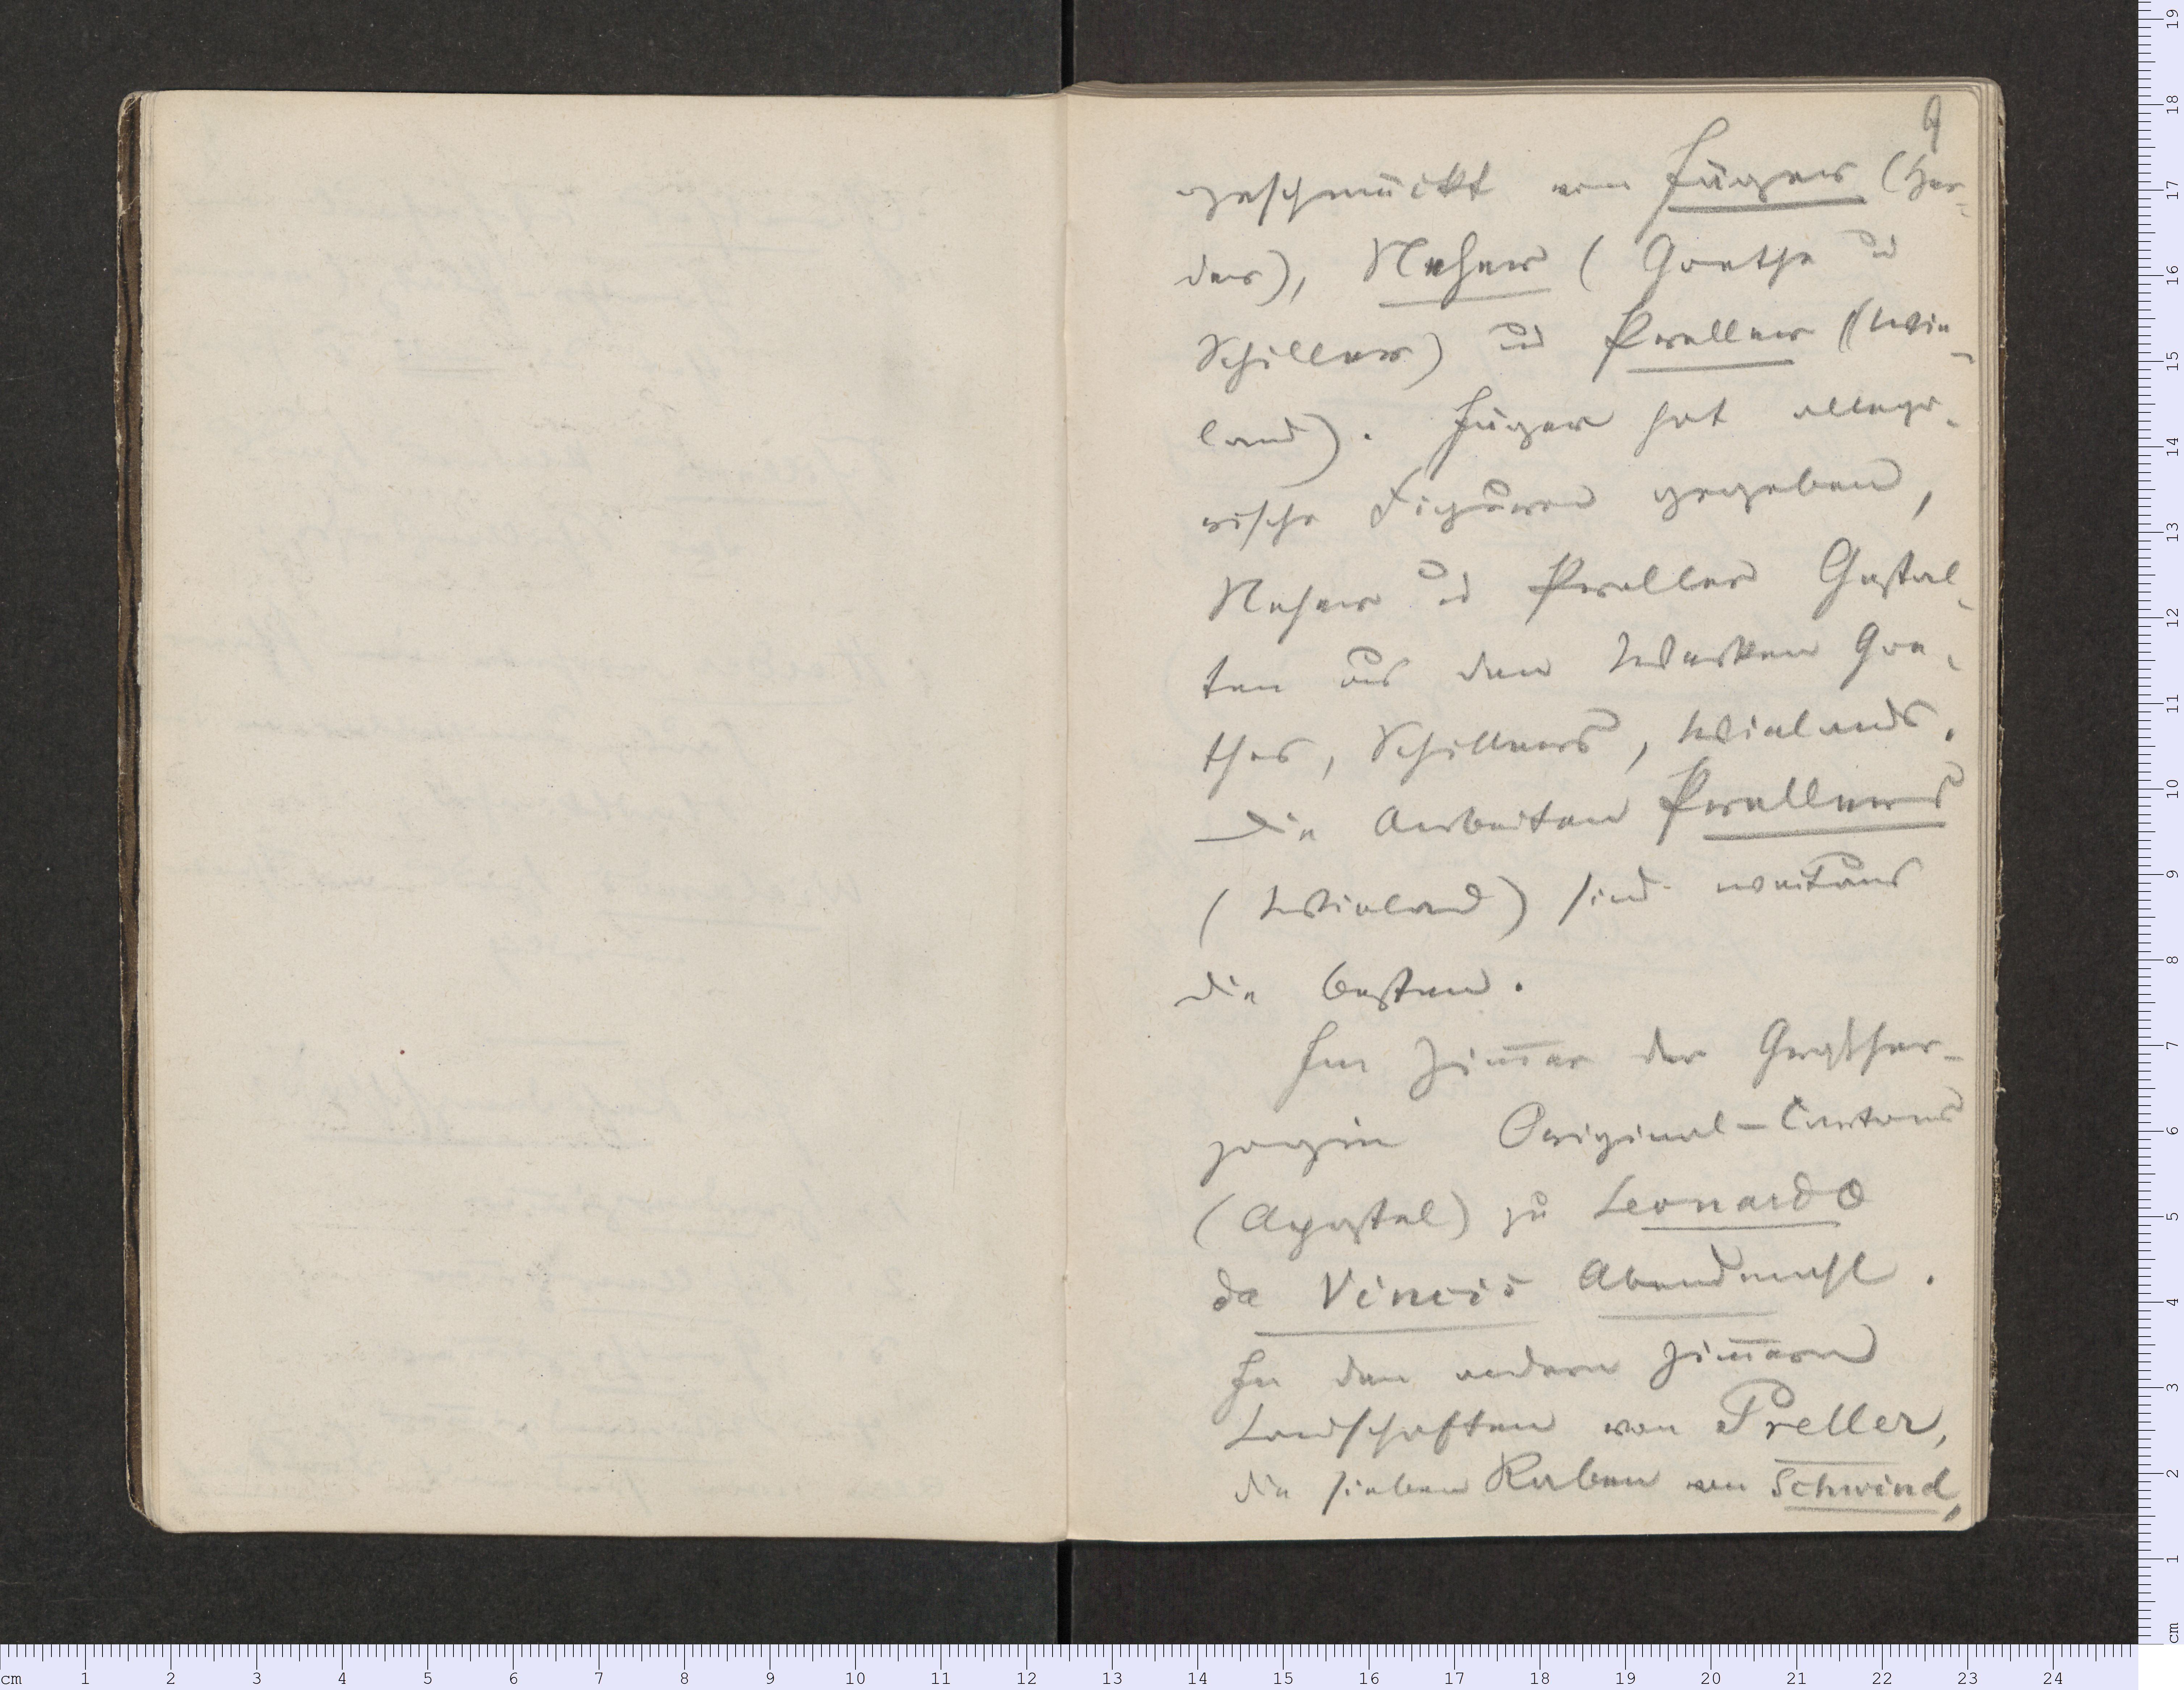 9
geschmückt von Jäger (Her-
der), Neher (Goethe u
Schiller) und Preller (Wie-
land). Jäger hat allego-
rische Figuren gegeben,
Neher u Preller Gestal-
ten aus den Werken Goe-
thes, Schillers, Wielands.
Die Arbeiten Prellers
(Wieland) sind weitaus
die besten.
Im Zim̅er der Großher-
zogin Original-Cartons
(Apostel) zu Leonardo
da Vincis Abendmahl.
In den andern Zim̅ern
Landschaften von Preller,
die sieben Raben von Schwind,